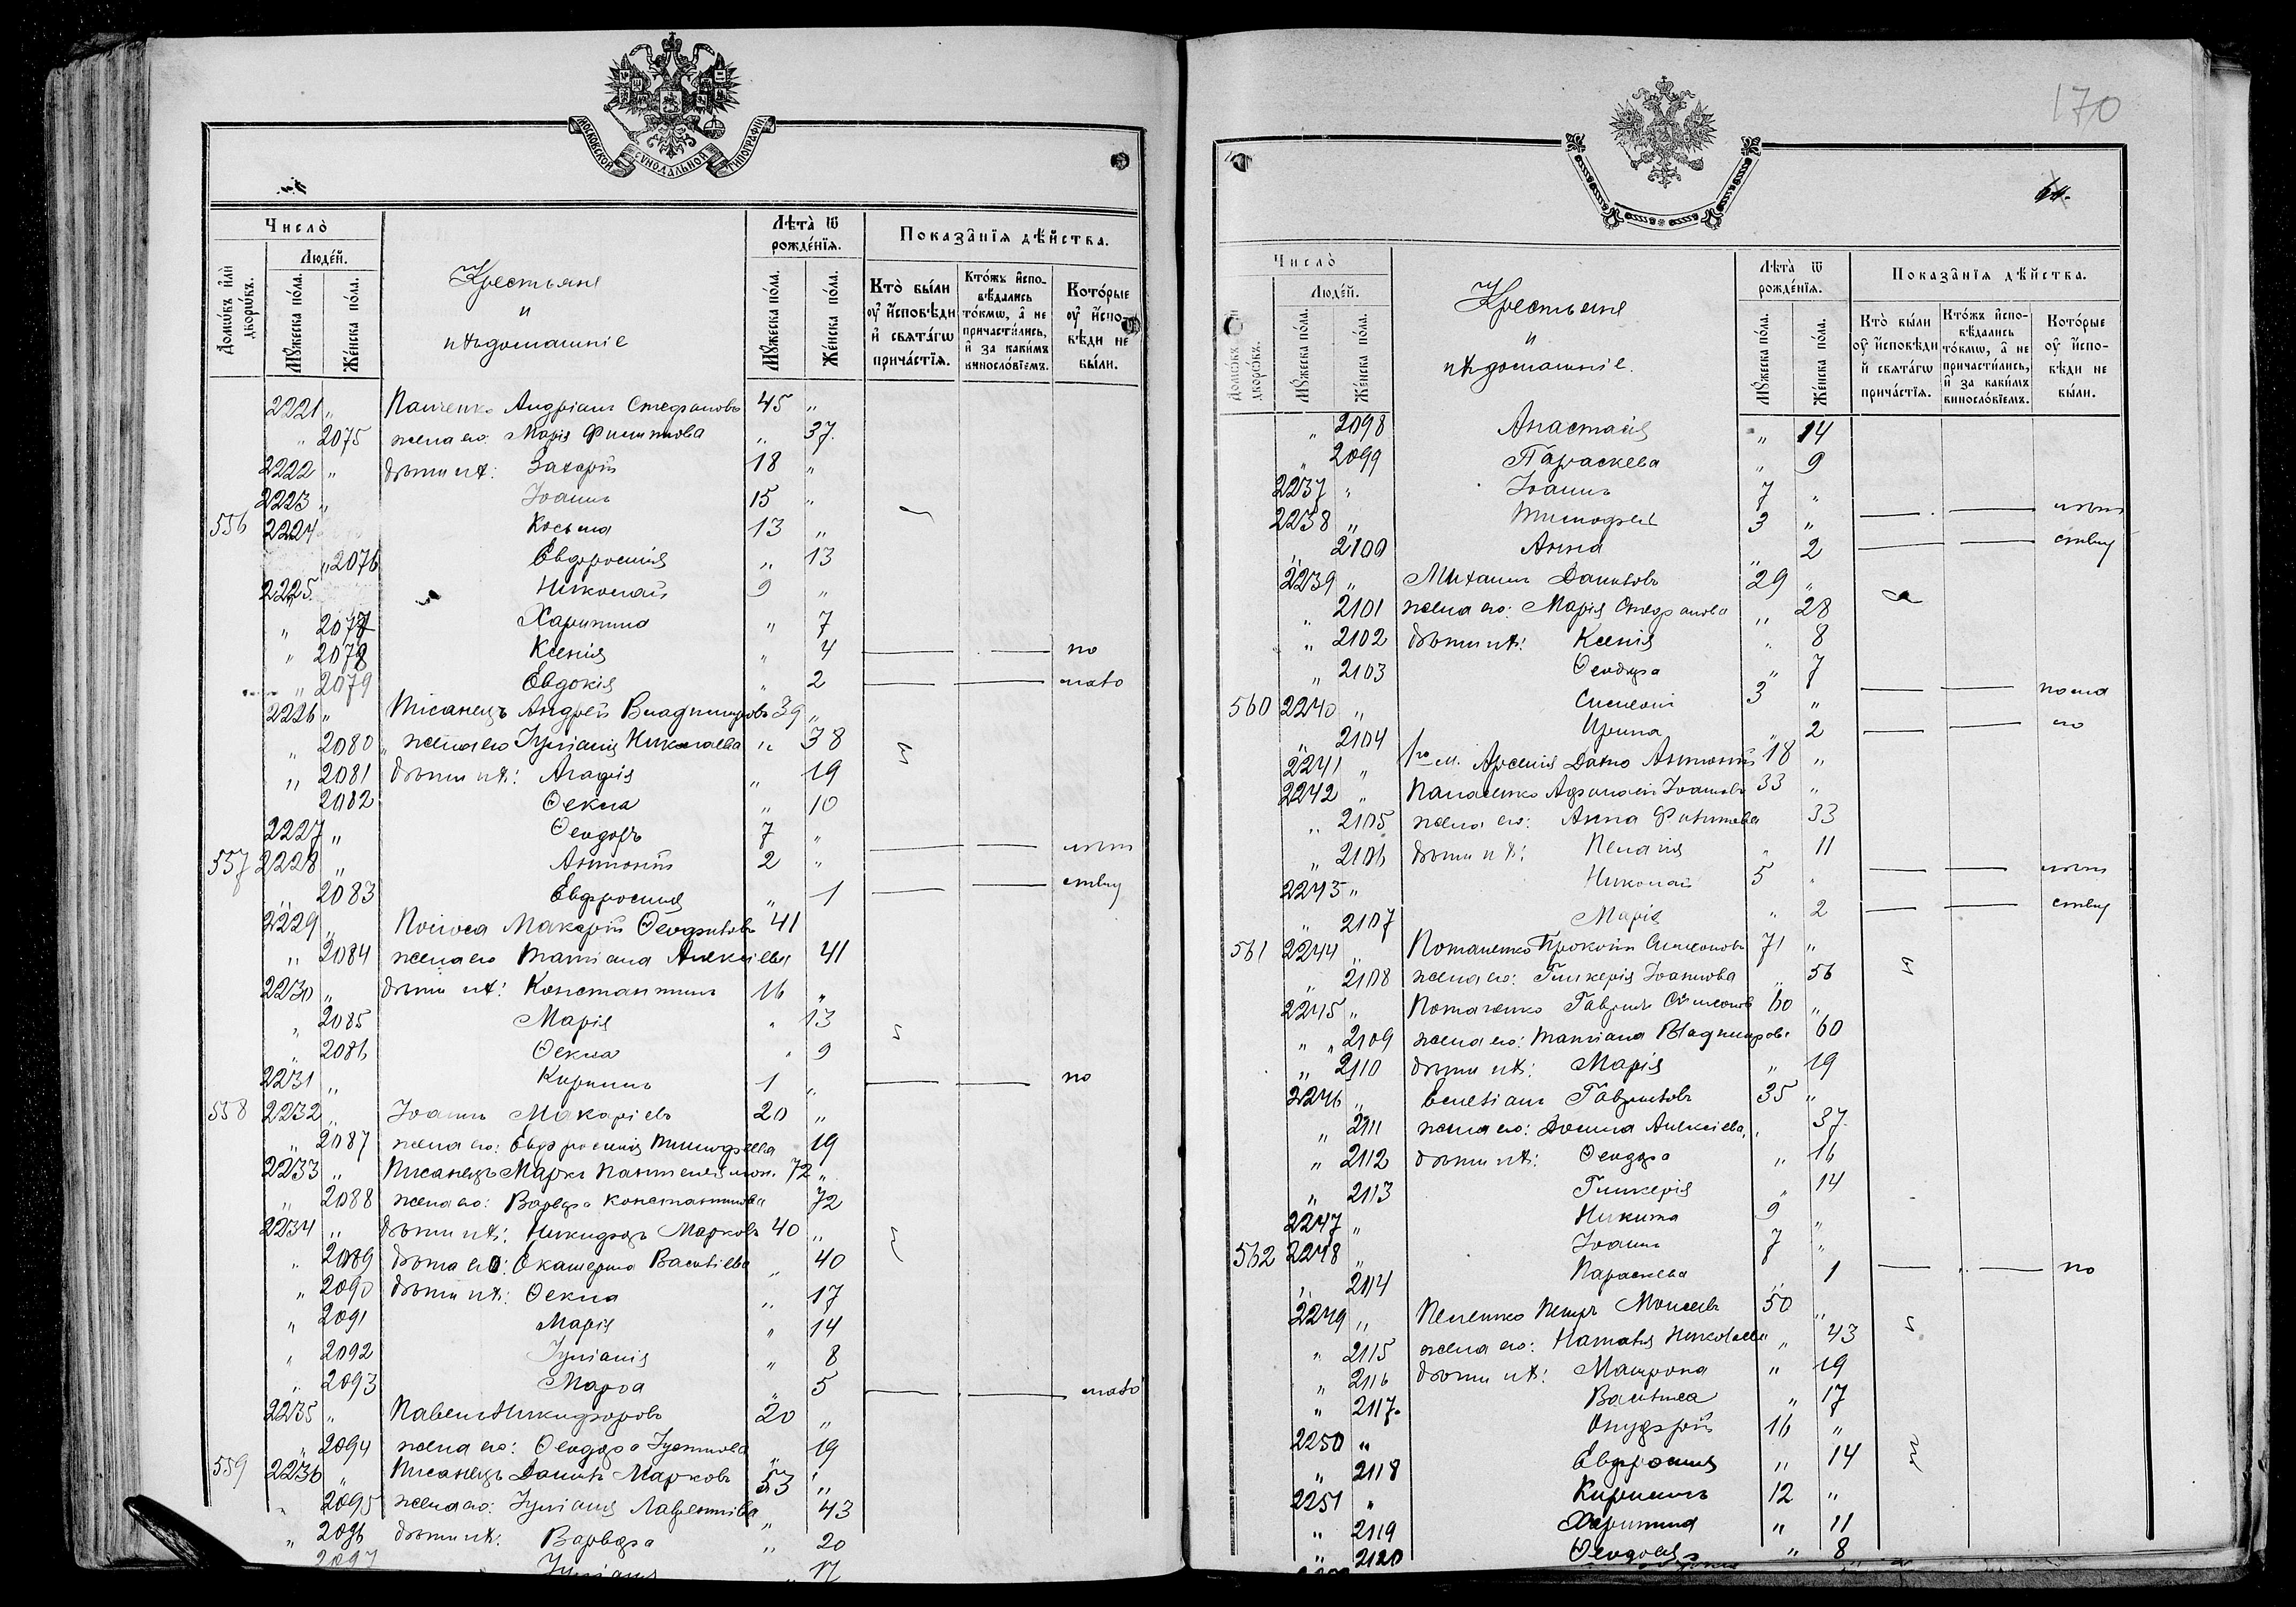 МОСКОВСКОЙ СѴНОДАЛЬНОЙ ТИПОГРАФІИ
Число̀
Людéй.
Домѡ́въ и҆лѝ дворѡ́въ.
Мꙋ́жеска по́ла.
Же́нска по́ла.
Крестьяне
и
ихъ домашніе
Лѣта̀ ѿ рожде́нїѧ.
Мꙋ́жеска по́ла.
Же́нска по́ла.
Показа̑нїѧ дѣ́йства.
Кто̀ бы́ли ᲂу҆ и҆сповѣди и҆ свѧта́гѡ прича́стїѧ.
Кто́жъ и҆сповѣдались то́кмѡ, а҆ не причасти́лись, и҆ за каки́мъ винослóвїемъ.
Кото́рые ᲂу҆ и҆сповѣди не бы́ли.
2221 „ Панченко Андріанъ Стефановъ 45 „
„ 2075 жена его: Марія Филиппова „ 37.
2222 „ дѣти ихъ: Захарій 18 „
2223 „ Іоаннъ 15 „
556 2224 Косьма 13 „
„ 2076 Евфросинія „ 13
2225 Николай 9 „
„ 2077 Харитина „ 7
„ 2078 Ксенія „ 4 по
„ 2079 Евдокія „ 2 мало
2226 „ Писанецъ Андрей Владимировъ 39 „
„ 2080 жена его Іуліанія Николаева „ 38
„ 2081 дѣти ихъ: Агафія „ 19
2082 Ѳекла „ 10
2227 „ Ѳеодоръ 7 „
557 2228 „ Антоній 2 „ лѣт
„ 2083 Евфросинія „ 1 ству
2229 „ Макарій Ѳеофиловъ 41
„ 2084 жена его Татіана Алексіева 41
2230 „ дѣти ихъ: Константинъ 16 „
„ 2085 Марія „ 13
„ 2086 Ѳекла „ 9
2231 „ Кириллъ 1 „ по
558 2232 „ Іоаннъ Макаріевъ 20 „
„ 2087 жена его: Евфросинія Тимофеева 19
2233 „ Писанецъ Маркъ Пантелеимон. 72 „
„ 2088 жена его: Варвара Константинова 72
2234 „ дѣти ихъ: Никифоръ Марковъ 40 „
„ 2089 жена его: Екатерина Василіева „ 40
„ 2090 дѣти ихъ: Ѳекла „ 17
„ 2091 Марія „ 14
„ 2092 Іуліанія „ 8
„ 2093 Марѳа „ 5 мало
2235 „ Павелъ Никифоровъ 20 „
„ 2094 жена его: Ѳеодора Іустинова „ 19
559 2236 „ Писанецъ Даніилъ Марковъ 53 „
„ 2095 жена его: Іуліанія Лаврентіева „ 43
„ 2096 дѣти ихъ: Варвара „ 20
2097 Іуліанія „ 17
170
Число̀
Людéй.
Домѡ́въ дворѡ́въ.
Мꙋ́жеска по́ла.
Же́нска по́ла.
Крестьяне
и
ихъ домашніе.
Лѣта̀ ѿ рожде́нїѧ.
Мꙋ́жеска по́ла.
Же́нска по́ла.
Показа̑нїѧ дѣ́йства.
Кто̀ бы́ли ᲂу҆ и҆сповѣди и҆ свѧта́гѡ прича́стїѧ.
Кто́жъ и҆сповѣдались то́кмѡ, а҆ не причасти́лись, и҆ за каки́мъ винослóвїемъ.
Кото́рые ᲂу҆ и҆сповѣди не бы́ли.
„ 2098 Анастасія „ 14
„ 2099 Параскева „ 9
2237 „ Іоаннъ 7 „
2238 „ Тимофей 3 „ лѣт
„ 2100 Анна „ 2 ству
2239 „ Михаилъ Даніиловъ 29 „
„ 2101 жена его: Марія Стефанова „ 28
„ 2102 дѣти ихъ: Ксенія „ 8
„ 2103 Ѳеодора „ 7
560 2240 „ Симеонъ 3 „
„ 2104 Ирина „ 2
2241 „ Антоній 18 „
2242 „ Афанасій Іоанновъ 33 „
„ 2105 жена его: Анна Филиппова 33
„ 2106 дѣти ихъ: Пелагія „ 11
2243 „ Николай 5 „ лѣт
„ 2107 Марія „ 2 ству
561 2244 „ Потапенко Прокопій Симеоновъ 71 „
„ 2108 жена его: Гликерія Іоаннова „ 56
2245 „ Потапенко Гавріилъ Симеонов 60 „
„ 2109 жена его: Татіана Владимиров. 60
„ 2110 дѣти ихъ: Марія „ 19
2246 „ Гавриловъ 35 „
„ 2111 жена его: Домна Алексіева „ 37
„ 2112 дѣти ихъ: Ѳеодора „ 16
„ 2113 Гликерія „ 14
2247 „ Никита 9 „
562 2248 „ Іоаннъ 7 „
„ 2114 Параскева „ 1 по
2249 „ Петръ Моисеевъ 50 „
„ 2115 жена его: Наталія Николаева „ 43
„ 2116 дѣти ихъ: Матрона „ 19
„ 2117. Василиса „ 17
2250 „ Онуфрій 16 „
„ 2118 Евфросинія „ 14
2251 „ Кириллъ 12 „
„ 2119 Харитина „ 11
„ 2120 Ѳеодосія „ 8